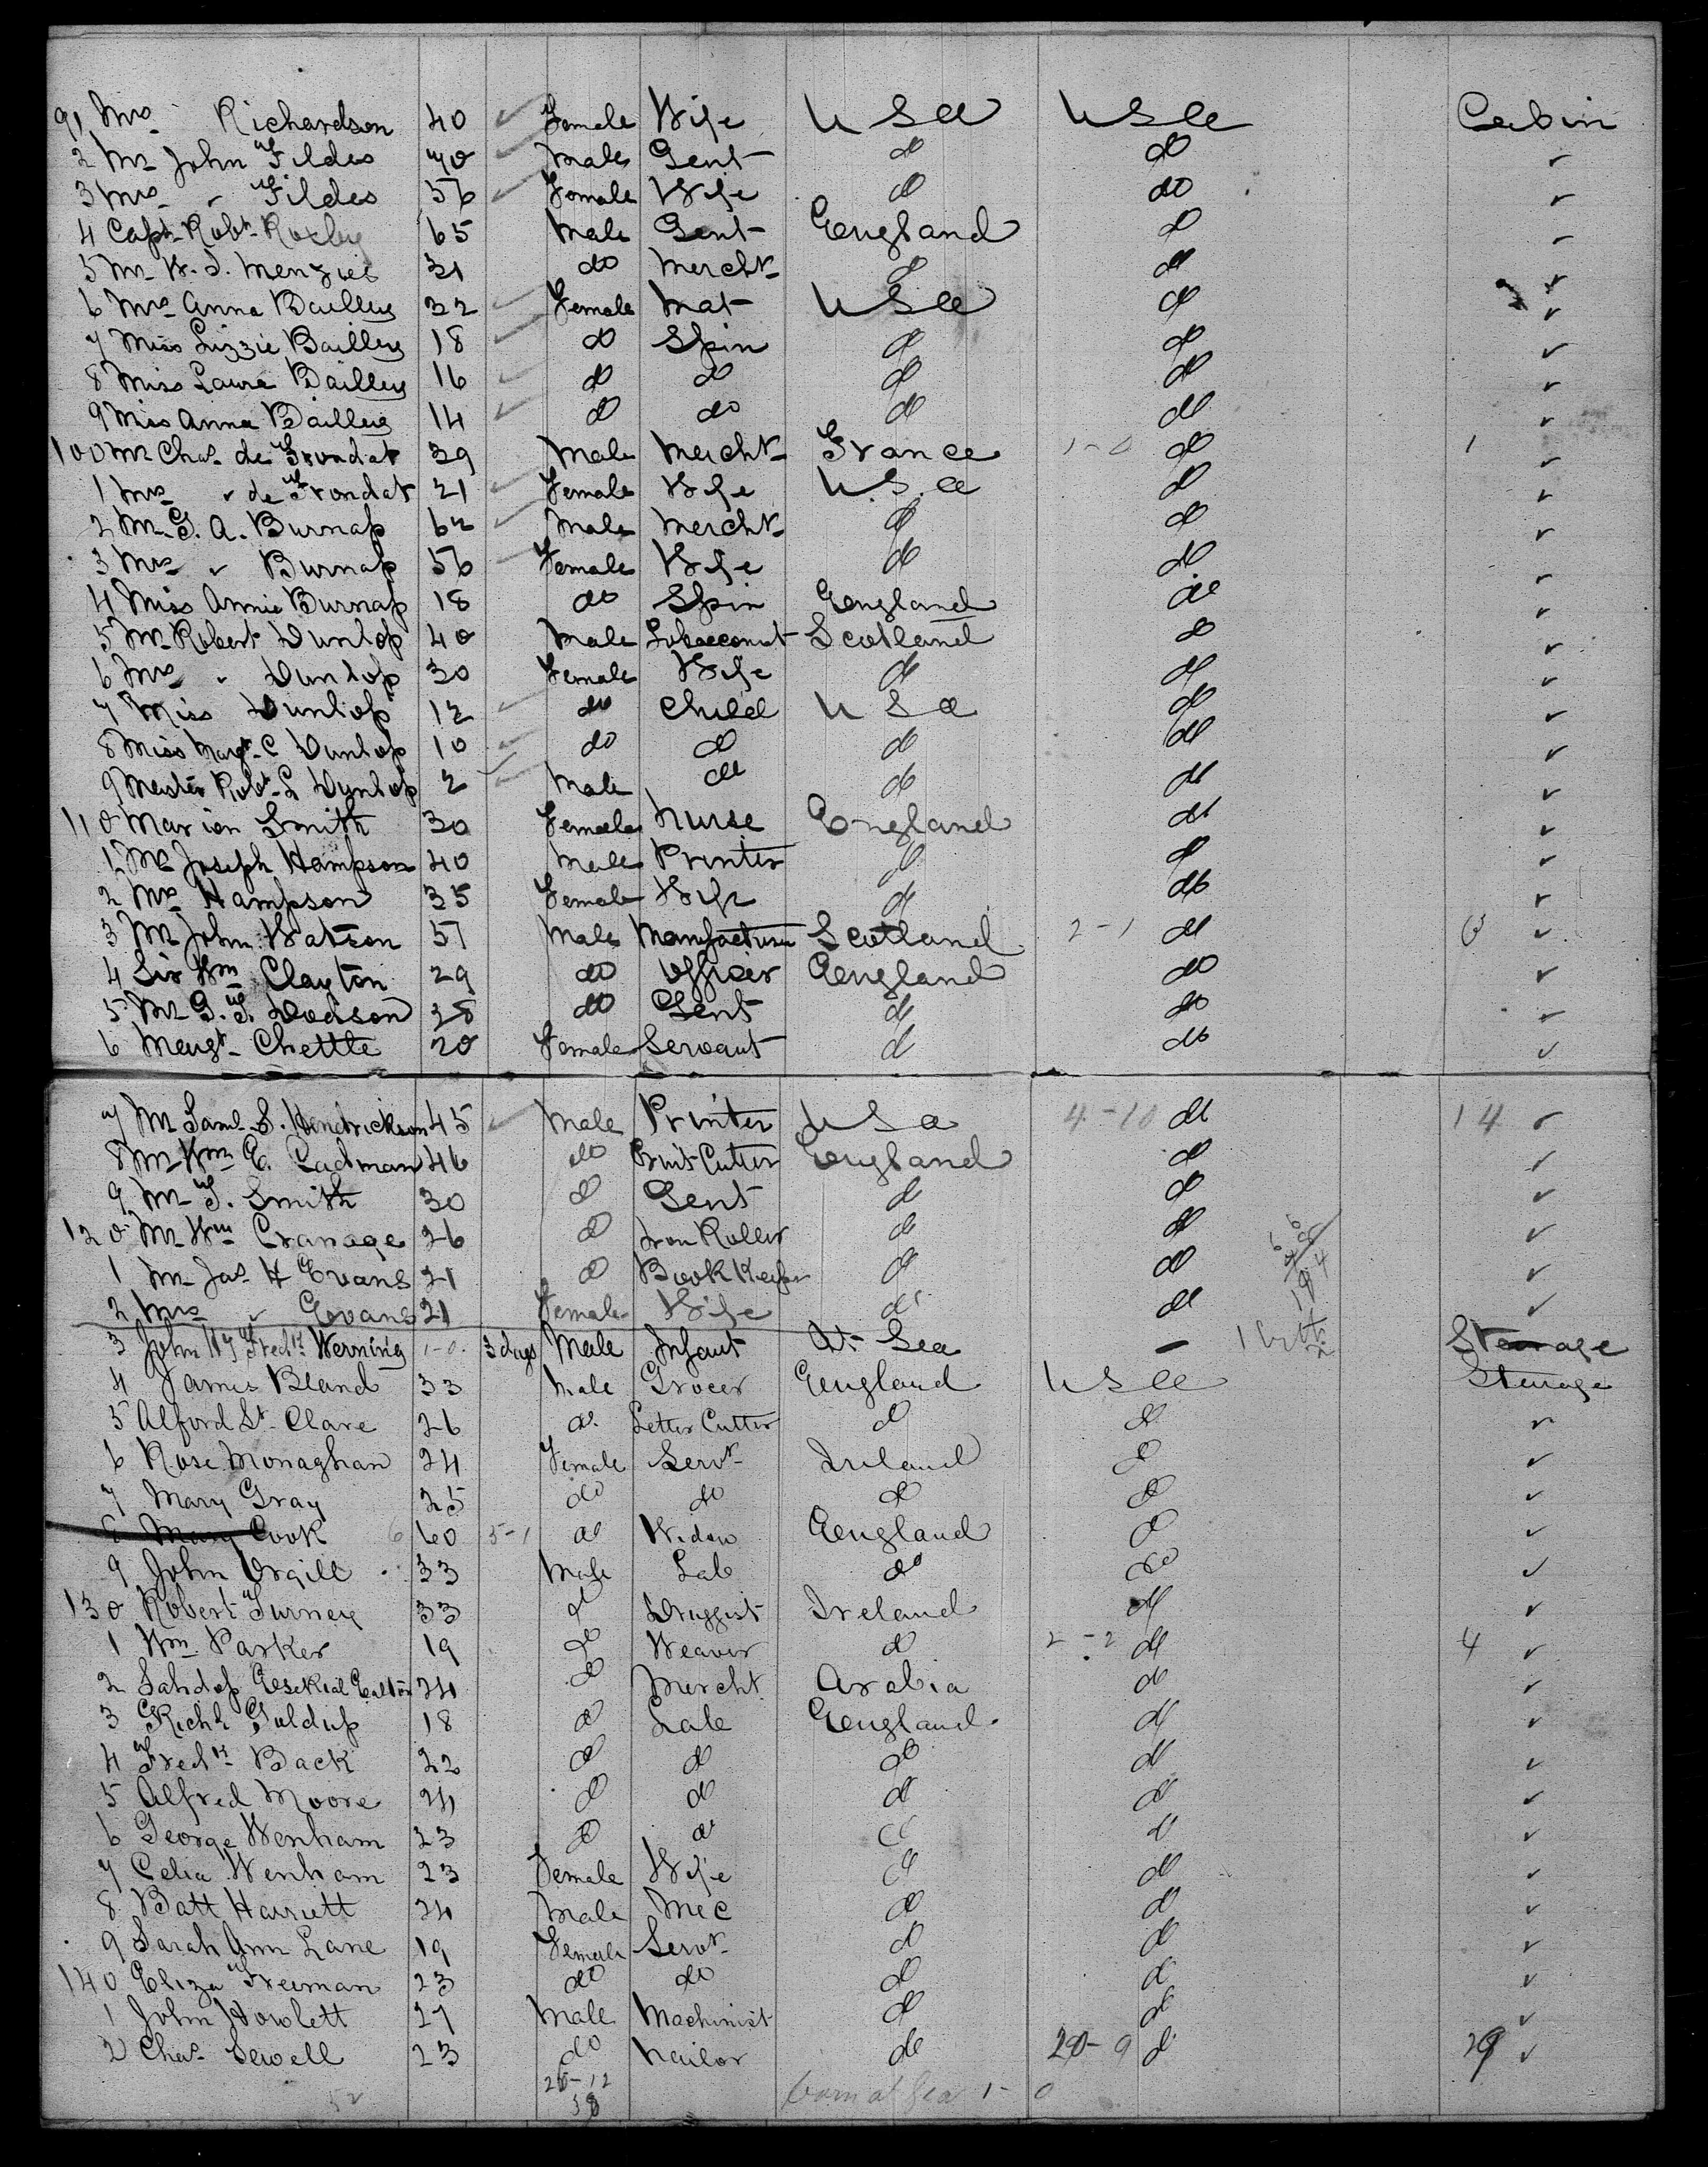 91 Mrs Richardson 40 ✓ Female Wife U S A U S A Cabin
2 Mr John Fildes 70 ✓ Male Gent do do ✓
3 Mrs " Fildes 56 ✓ Female Wife do do ✓
4 Capt Robt Roxby 65 Male Gent England do ✓
5 Mr W. J. Menzies 31 do Mercht do do ✓
6 Mrs Anna Bailley 32 ✓ Female Mat U S A do ✓
7 Miss Lizzie Bailley 18 ✓ do Spin do do ✓
8 Miss Laura Bailley 16 ✓ do do do do ✓
9 Miss Anna Bailley 14 ✓ do do do do ✓
100 Mr Chas de Frondat 39 Male Mercht France 1-0 do 1 ✓
1 Mrs " de Frondat 21 ✓ Female Wife U.S.A do ✓
2 Mr G. A. Burnap 62 ✓ Male Mercht do do ✓
3 Mrs " Burnap 56 ✓ Female Wife do do ✓
4 Miss Annie Burnap 18 do Spin England do ✓
5 Mr Robert Dunlop 40 Male Tobacconist Scotland do ✓
6 Mrs " Dunlop 30 Female Wife do do ✓
7 Miss Dunlop 12 ✓ do Child U S A do ✓
8 Miss Margt C Dunlop 10 ✓ do do do do ✓
9 Master Robt L Dunlop 2 ✓ Male do do do ✓
110 Marion Smith 30 Female Nurse England do ✓
1 Mr Joseph Hampson 40 Male Printer do do ✓
2 Mrs Hampson 35 Female Wife do do ✓
3 Mr John Watson 57 Male Manufacturer Scotland 2-1 do 3 ✓
4 Sir Wm Clayton 29 do Officer England do ✓
5 Mr G. F. Dodson 38 do Gent do do ✓
6 Margt Chettle 20 Female Servant do do ✓
7 Mr Saml S. Hendrickson 45 ✓ Male Printer U S A 4-10 do 14 ✓
8 Mr Wm E. Cadman 46 do Print Cutter England do ✓
9 Mr F. Smith 30 do Gent do do ✓
120 Mr Wm Cranage 26 do Iron Roller do do ✓
1 Mr Jas H Evans 21 do Book Keeper do do ✓
2 Mrs " Evans 21 Female Wife do do ✓
3 John Hy Fredk Werning 1-0 3 days Male Infant At Sea - Steerage
4 James Bland 33 Male Grocer England U S A Steerage
5 Alford St Clare 26 do Letter Cutter do do ✓
6 Rose Monaghan 24 Female Servt Ireland do ✓
7 Mary Gray 25 do do do do ✓
8 Mary Cook 60 5-1 do Widow England do ✓
9 John Orgill 33 Male Lab do do ✓
130 Robert Turney 33 do Druggist Ireland do ✓
1 Wm Parker 19 do Weaver do 2-2 do 4 ✓
2 Esekial 24 do Mercht Arabia do ✓
3 Richd Guldup 18 do Lab England do ✓
4 Fredk Back 22 do do do do ✓
5 Alfred Moore 24 do do do do ✓
6 George Wenham 23 do do do do ✓
7 Celia Wenham 23 Female Wife do do ✓
8 Batt Harriett 24 Male Mec do do ✓
9 Sarah Ann Lane 19 Female Servt do do ✓
140 Eliza Freeman 23 do do do do ✓
1 John Howlett 27 Male Machinist do do ✓
2 Chas Sewell 23 do Nailor do 20-9 do 29 ✓
52 26-12 born at Sea 1-0
38